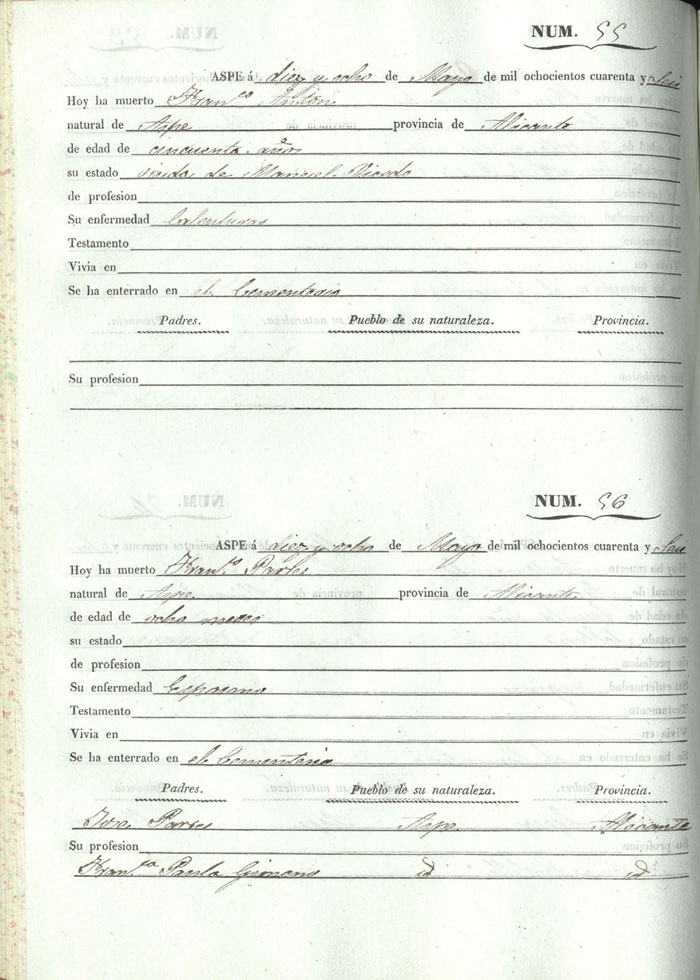 NUM. 55
ASPE á diez y ocho de Mayo de mil ochocientos cuarenta y seis
Hoy ha muerto Fran.co Anton
natural de Aspe provincia de Alicante
de edad de cincuenta años
su estado viuda de Manuel Vicedo
de profesion
Su enfermedad Calenturas
Testamento
Vivia en
Se ha enterrado en el Cementerio
Padres. Pueblo de su naturaleza. Provincia.
Su profesion
NUM. 56
ASPE á diez y ocho de Mayo de mil ochocientos cuarenta y seis
Hoy ha muerto Fran.co
natural de Aspe provincia de Alicante
de edad de ocho meses
su estado
de profesion
Su enfermedad Espasmo
Testamento
Vivia en
Se ha enterrado en el Cementerio
Padres. Pueblo de su naturaleza. Provincia.
Aspe. Alicante
Su profesion
Fran.ca Paula id id